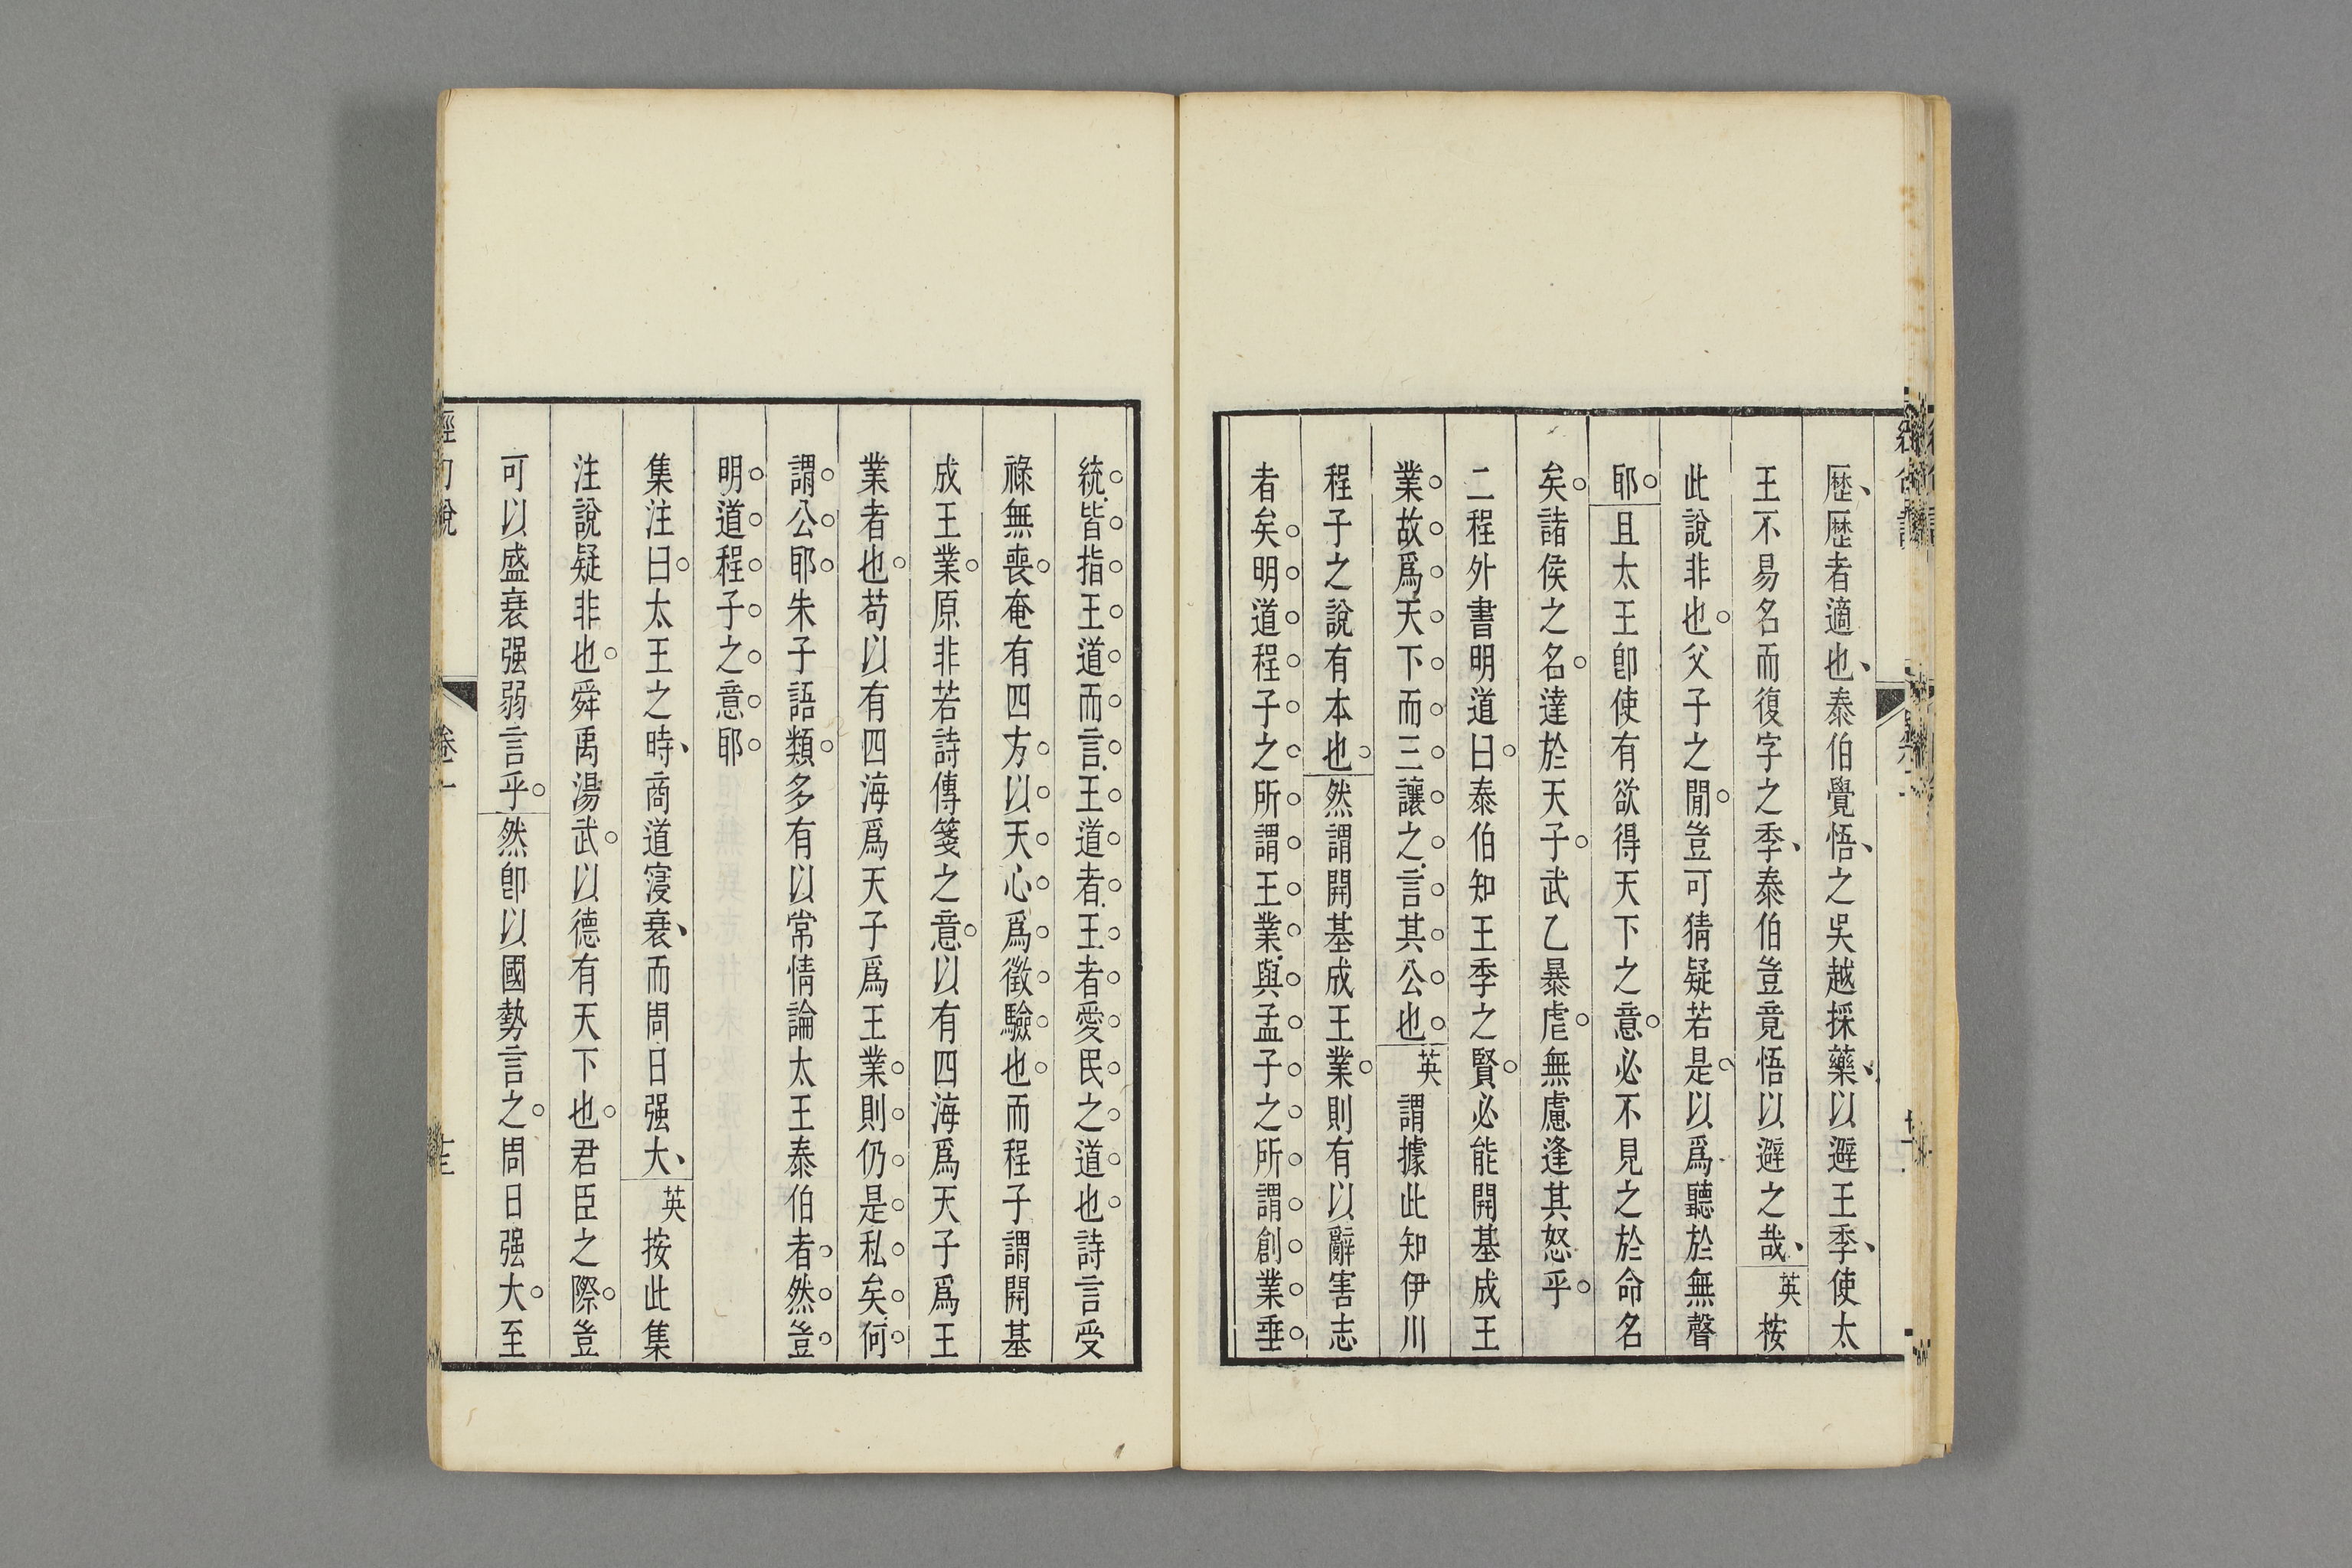 歴歴者適也泰伯覺悟之吳越採藥以避王季使太
王不易名而復字之季泰伯豈竟悟以避之哉英按
此說非也父子之閒豈可猜疑若是以爲聽於無聲
耶且太王卽使有欲得天下之意必不見之於命名
矣諸侯之名達於天子武乙暴虐無慮逢其怒乎
二程外書明道曰泰伯知王季之賢必能開基成王
業故爲天下而三讓之言其公也英謂據此知伊川
程子之說有本也然謂開基成王業則有以辭害志
者矣明道程子之所謂王業與孟子之所謂創業垂
統皆指王道而言王道者王者愛民之道也詩言受
祿無喪奄有四方以天心爲徵驗也而程子謂開基
成王業原非若詩傳箋之意以有四海爲天子爲王
業者也苟以有四海爲天子爲王業則仍是私矣何
謂公耶朱子語類多有以常情論太王泰伯者然豈
明道程子之意耶
集注曰太王之時商道寖衰而周日强大英按此集
注說疑非也舜禹湯武以德有天下也君臣之際豈
可以盛衰强弱言乎然卽以國勢言之周日强大至
卷一